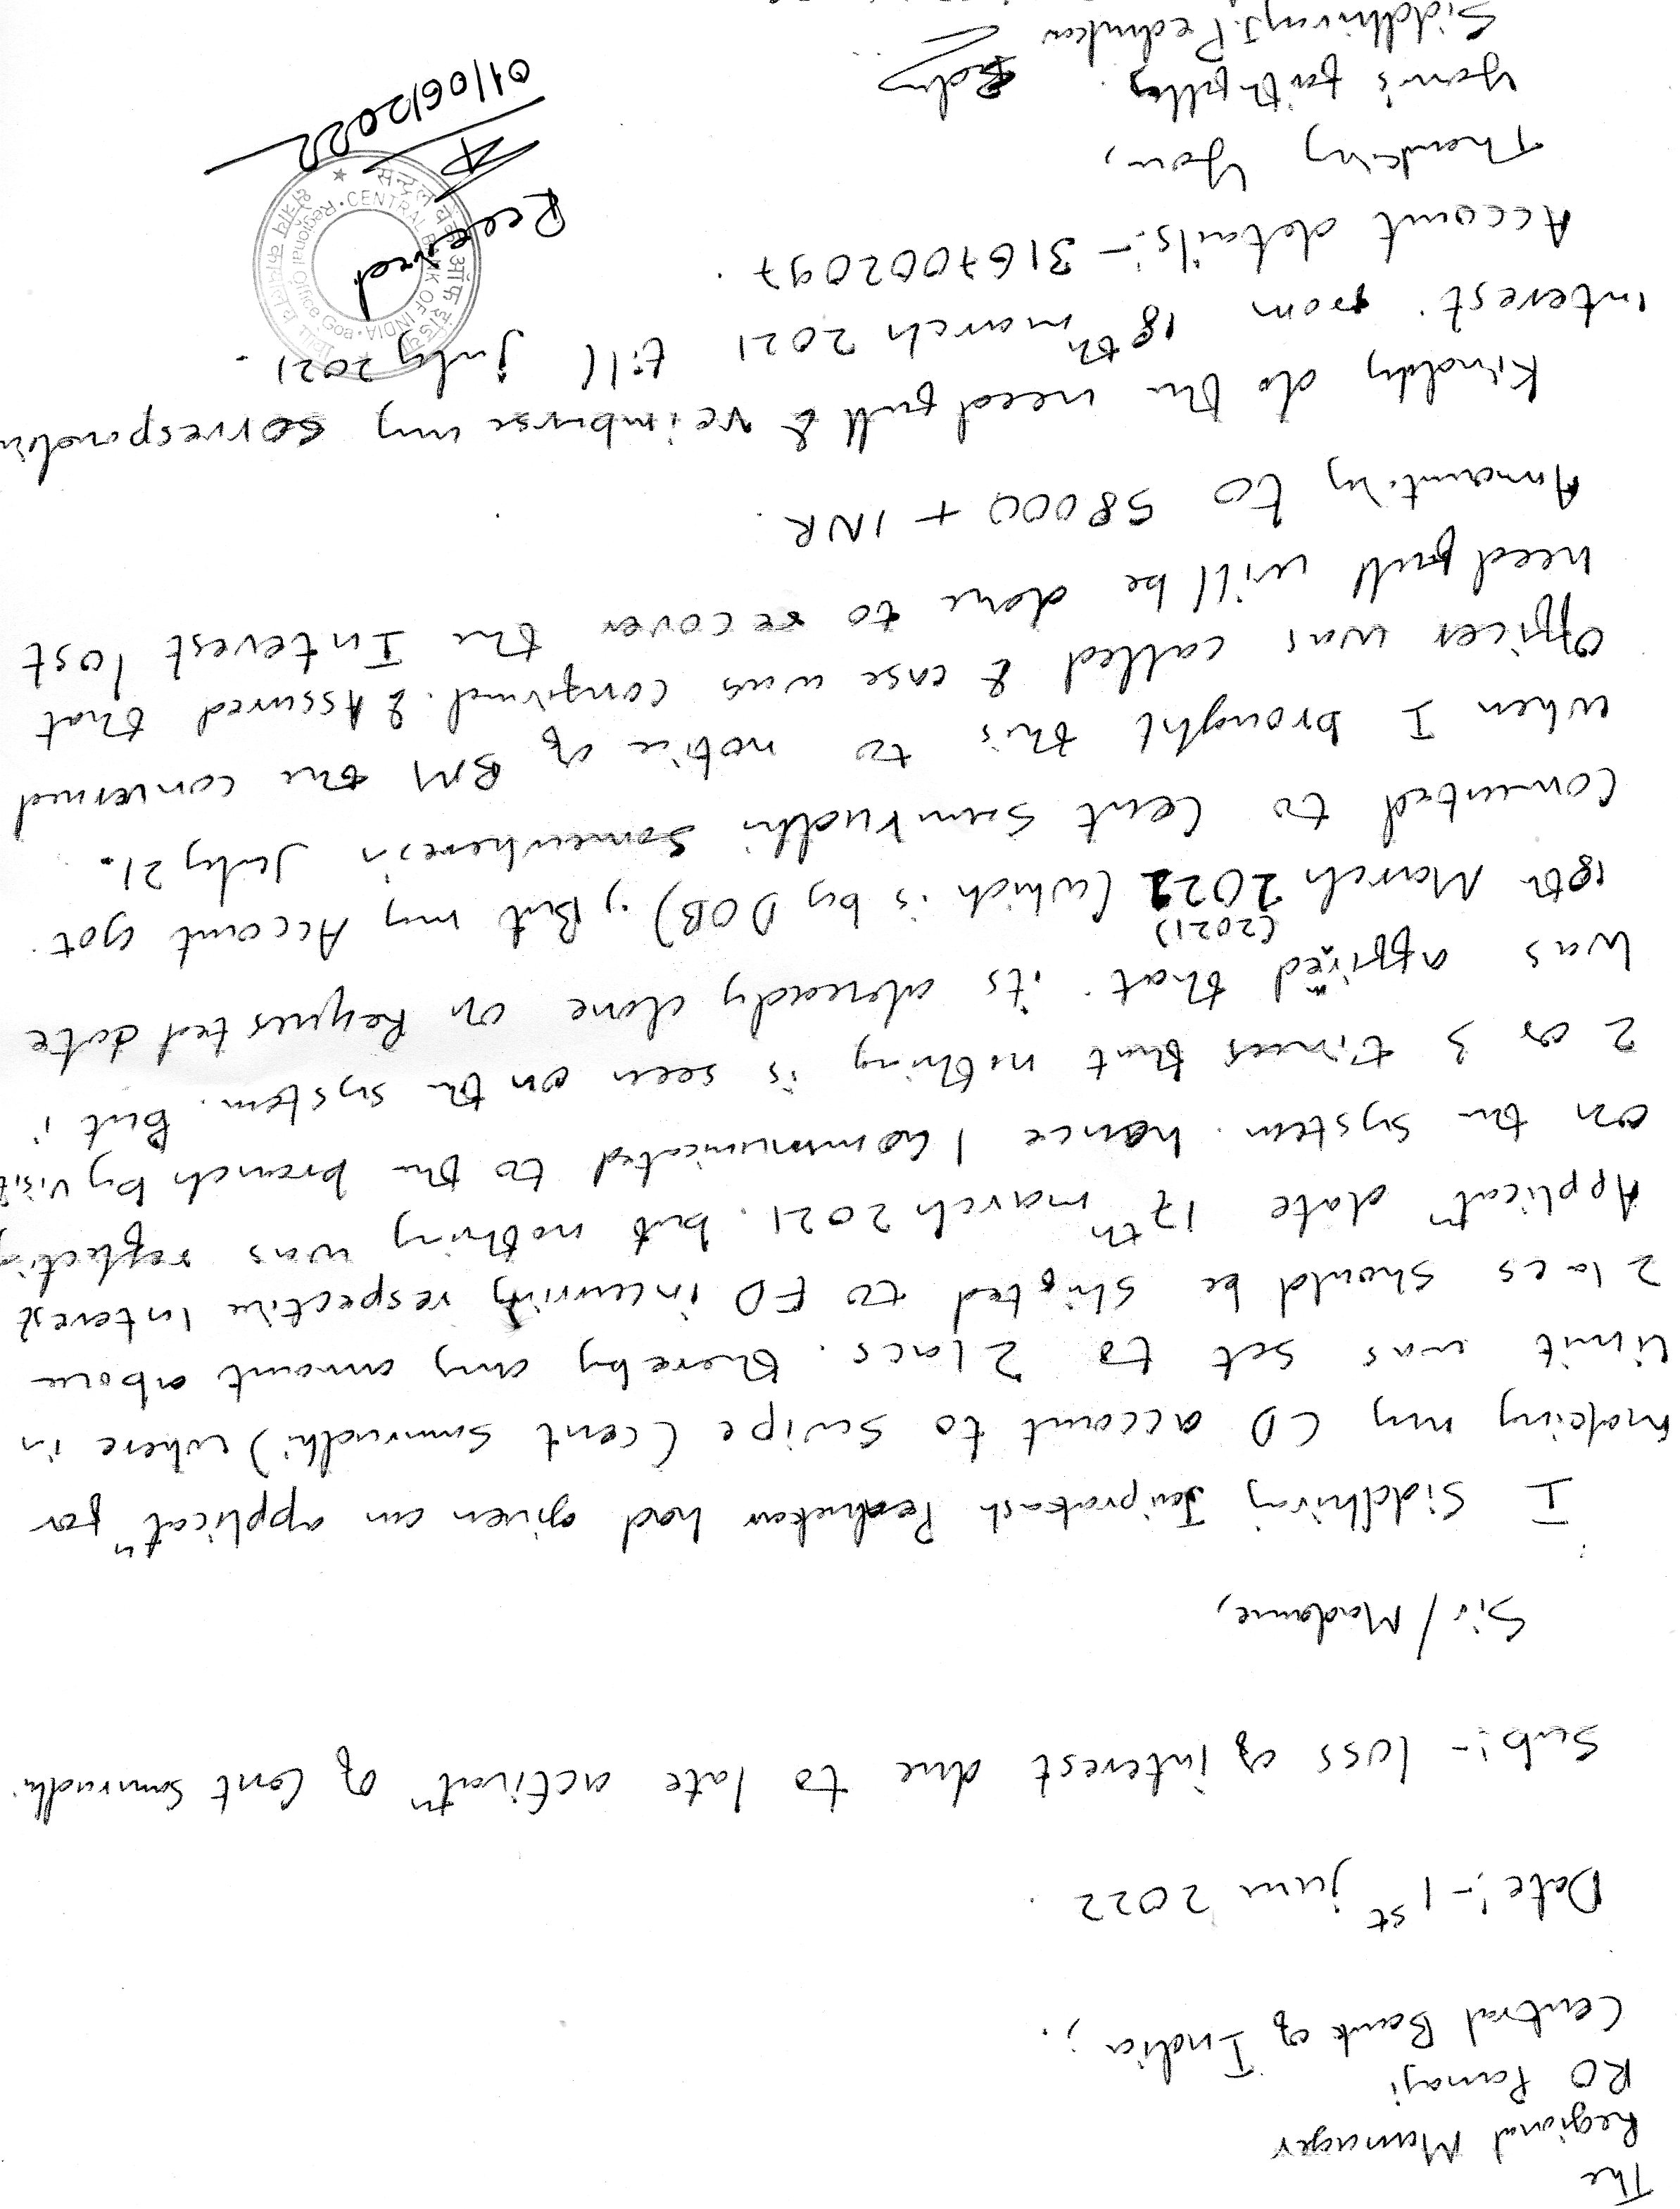 The
Regional Manager
RO Panaji
Central Bank of India ;.
Date :- 1st june 2022 .
Sub :- loss of interest due to late activatn of Cent Samrudhi
Sir / Madame,
I Siddhiraj Jaiprakash Pednekar had given an applicatn for
making my CD account to swipe (cent samrudhi) where in
limit was set to 2 lacs. thereby any amount above
2 lacs should be shifted to FD incurring respective Interest
Applicatn date 17th march 2021. but nothing was reflectin
on the system. hence I communicated to the branch by visit
2 or 3 times that nothing is seen on the system. But i
was affirmed that its already done on Requested date
(2021)
18th March 2021 (which is by DOB)., But my Account got
Converted to Cent Samrudhi somewhere in July 21.
when I brought this to notice of BM the concerned
Officer was called & case was confirmed. & Assured that
need full will be done to recover the Interest lost
Amounting to 58000 + INR.
Kindly do the need full & reimburse my correspondin
interest from 18th march 2021 till july 2021.
Account details :- 3167002097.
Thanking You,
Your's faithfully.
Siddhiraj J. Pednekar
Received
01/06/2022
CENTRAL BANK OF INDIA
Regional Office Goa